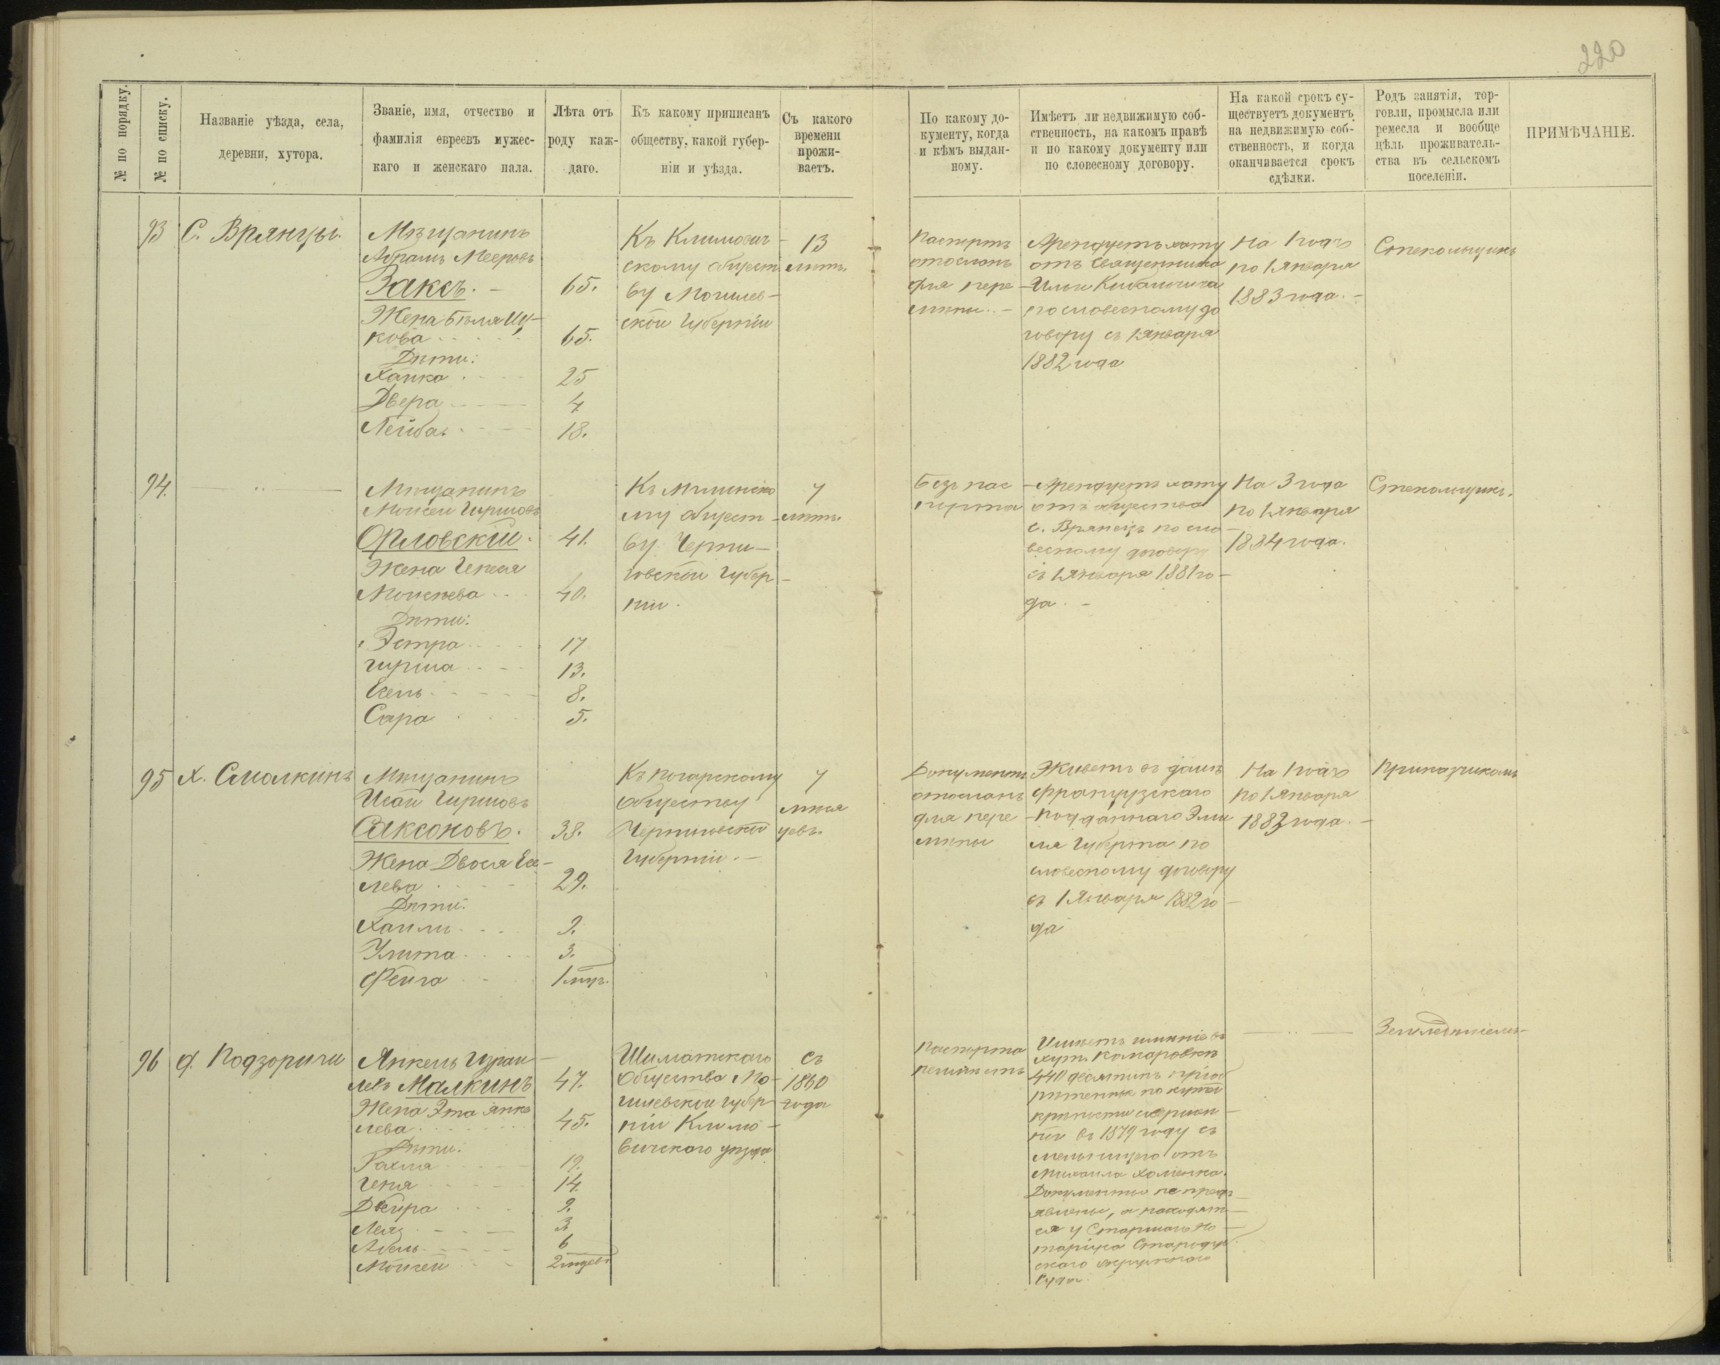 220
№ по порядку.
№ по списку.
Названіе уѣзда, села,
деревни, хутора.
Званіе, имя, отчество и
фамилія евреевъ мужес-
каго и женскаго пала.
Лѣта отъ
роду каж-
даго.
Къ какому приписанъ
обществу, какой губер-
ніи и уѣзда.
Съ какого
времени
прожи-
ваетъ.
По какому до-
кументу, когда
и кѣмъ выдан-
ному.
Имѣетъ ли недвижимую соб-
ственность, на какомъ правѣ
и по какому документу или
по словесному договору.
На какой срокъ су-
ществуетъ документъ
на недвижимую соб-
ственность, и когда
оканчивается срокъ
сдѣлки.
Родъ занятія, тор-
говли, промысла или
ремесла и вообще
цѣль проживатель-
ства въ сельскомъ
поселеніи.
ПРИМѢЧАНІЕ.
93
С. Врянцы
Мѣщанинъ
Абрамъ Мееровъ
Заксъ. –
Жена Бѣля Иц-
кова
Дѣти:
Ханка
Двера
Лейба
65.
65.
25
4
18.
Къ Климович-
скому общест-
ву Могилев-
ской Губерніи
13
лѣтъ
Паспортъ
отосланъ
для пере-
мѣны. –
Арендуетъ хату
отъ Священника
Ильи
по словесному до
говору съ 1 января
1882 года
На 1 годъ
по 1 Января
1883 года. –
Стекольщикъ
94.
– " –
Мѣщанинъ
Моисей Гиршовъ
Орловскій.
Жена
Моисѣева
Дѣти:
Эстра
Гирша
Сара
41.
40.
17
13.
8.
5.
Къ Мглинско
му общест-
ву Черни-
говской Губер-
ніи.
7
лѣтъ
Безъ пас-
порта
Арендуетъ хату
отъ общества
с. Врянецъ по сло
весному договору
съ 1 Января 1881 го-
да. –
На 3 года
по 1 Января
1884 года.
Стекольщикъ.
95
х. Смолкинъ
Мѣщанинъ
Исай Гиршовъ
Саксоновъ.
Жена Двося
лева
Дѣти:
Улита
Фейга
38.
29.
9.
3.
1 мѣс.
Къ Погарскому
обществу
Черниговской
Губерніи. –
7
мѣся
цевъ.
Документъ
отосланъ
для пере-
мѣны
Живетъ въ домѣ
французскаго
подданнаго Эми
ля Губерта по
словесному договору
съ 1 Января 1882 го-
да
На 1 годъ
по 1 Января
1883 года. –
Приказчикомъ
96
д. Подзоричи
Янкель Израи-
левъ Малкинъ
Жена Эта Янке
лева
Дѣти:
Геня
Двейра
Лея
Моисей
47.
45.
19.
14.
9.
3
6
Общества Мо-
гилевской Губер-
ніи Климо-
вичскаго уѣзда
Съ
года
Паспорта
Имѣетъ имѣніе въ
хут. Комаровкѣ
440 десятинъ пріоб
рѣтенное по купчей
крѣпости совершен-
ной въ 1879 году съ
отъ
Михаила
Документы не предъ-
явлены, а находят-
ся у Старшаго Но-
таріуса Стародуб
скаго окружнаго
Суда.
– " –